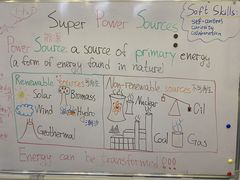 Super Power Sources
Soft Skills:
self-control
curiosity
collaboration
Power Source: a source of primary energy
(a form of energy found in nature)
Renewable sources
Non-Renewable sources
Solar
Biomass
Wind
Hydro
Geothermal
Nuclear
Oil
Coal
Gas
Energy can be transformed!!!